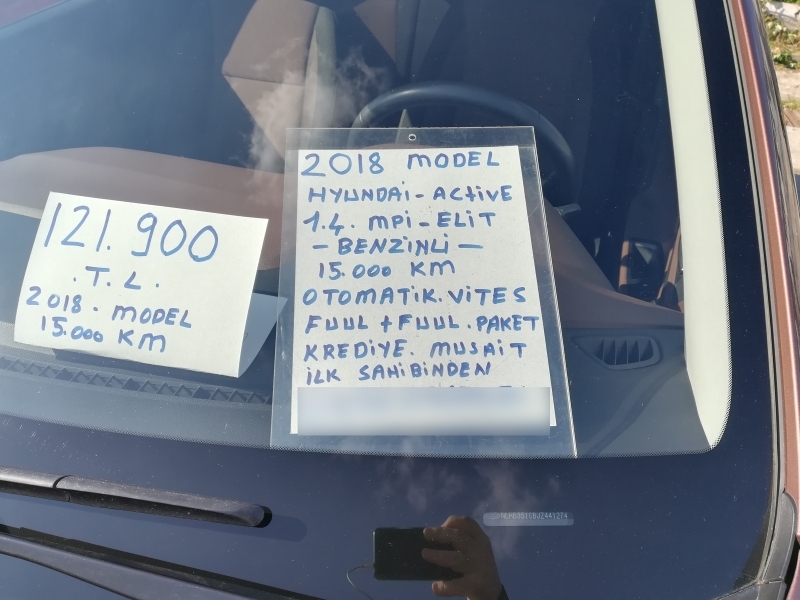 121.900
.T.L.
2018. MODEL
15.000 KM
2018 MODEL
HYUNDAİ-ACtİVE
1.4. MPİ-ELİT
-BENZİNLİ-
15.000 KM
OTOMATİK.VİTES
FUUL+FUUL.PAKET
KREDİYE. MUSAİT
İLK SAHİBİNDEN